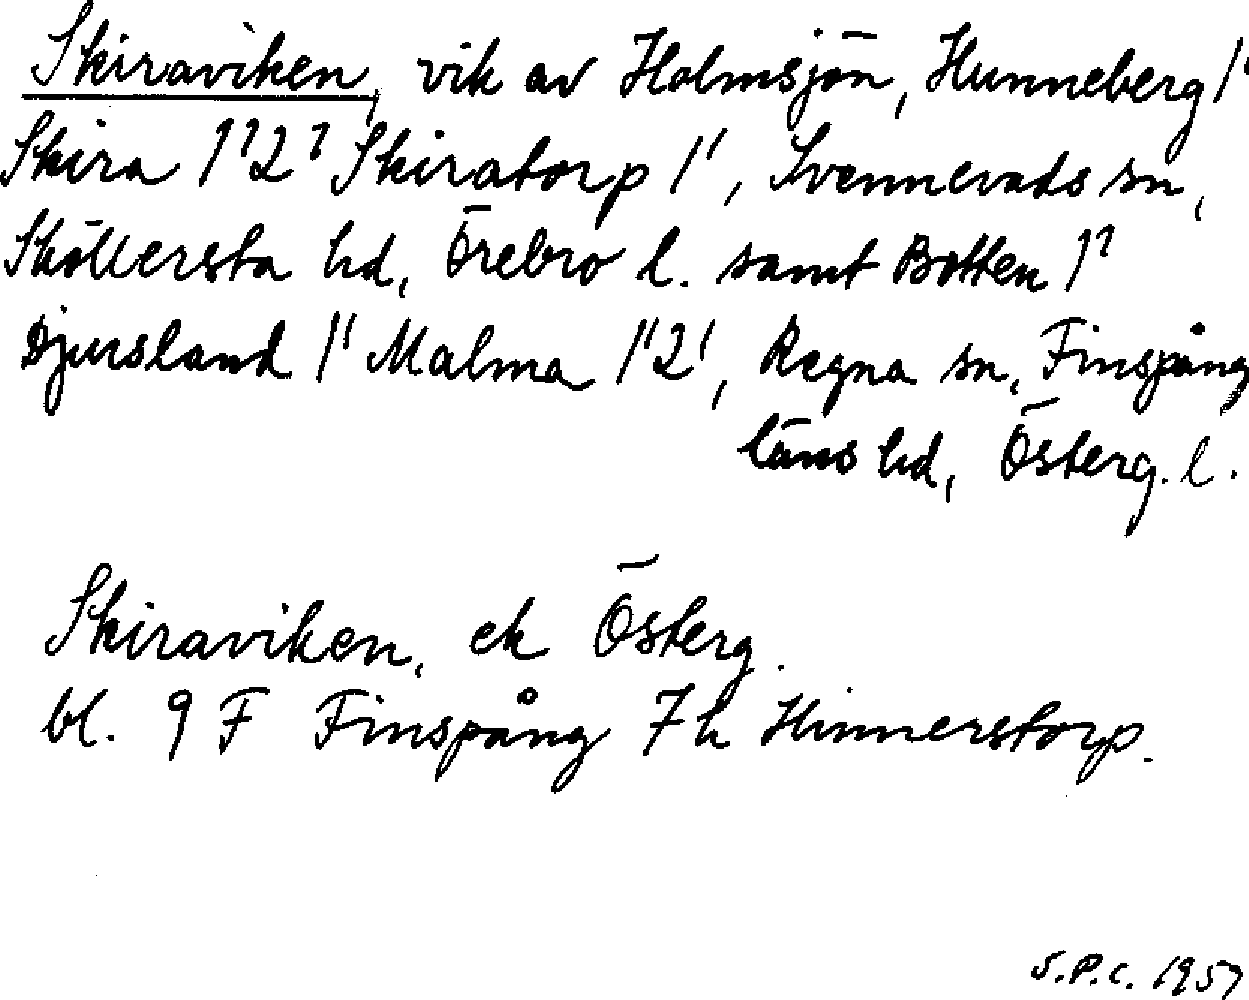 Skiraviken, vik av Holmsjön, Hunneberg 1¹
Skira 1¹2¹ Skiratorp 1¹, Svennevads sn,
Sköllersta hd, Örebro l. samt Botten 1¹
Djursland 1¹ Malma 1¹2¹, Regna sn, Finspång
läns hd, Österg. l.
Skiraviken, ek Österg.
bl. 9 F Finspång 7 h Hinnerstorp.
S.P.C. 1957